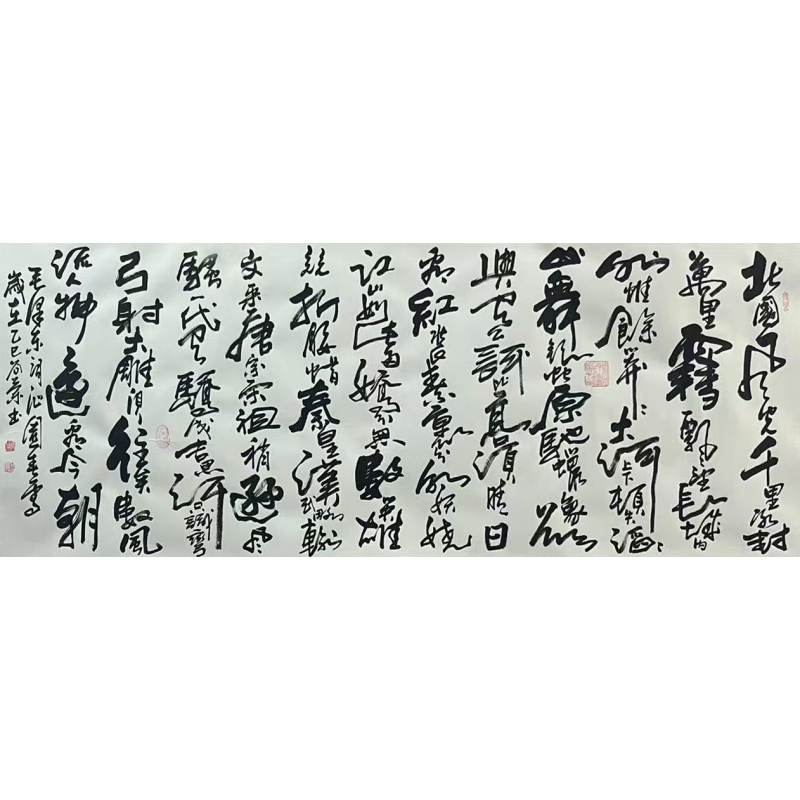 北國風光千里冰封
萬里雪飄望長城内
外惟餘莽〻大河上下頓失滔〻
山舞銀蛇原馳蠟象欲
與天公試比高須晴日
看紅裝素裹分外妖嬈
江山如此多嬌引無數英雄
競折腰惜秦皇漢武略輸
文采唐宗宋祖稍遜風
騷一代天驕成吉思汗只識彎
弓射大雕俱往矣數風
流人物還看今朝
毛澤東詞沁園春雪
歲在乙巳書